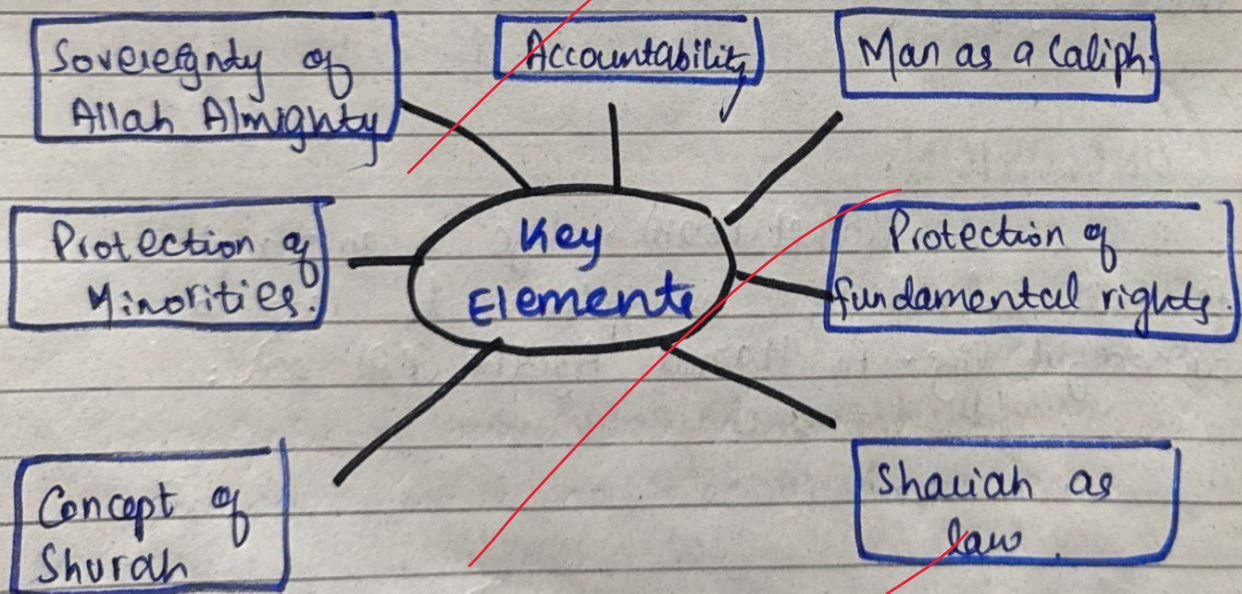 Sovereignty of
Allah Almighty
Accountability
Man as a Caliph.
Protection of
Minorities.
Key
Elements
Protection of
fundamental rights.
Concept of
Shurah
Shariah as
law.